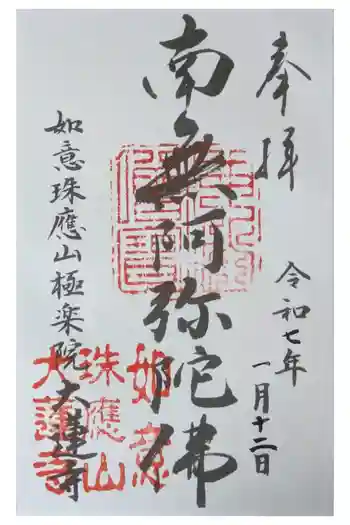 奉拝
令和七年
一月十二日
南無阿弥陀佛
如意珠應山極楽院大蓮寺
如意
珠應山
大蓮寺